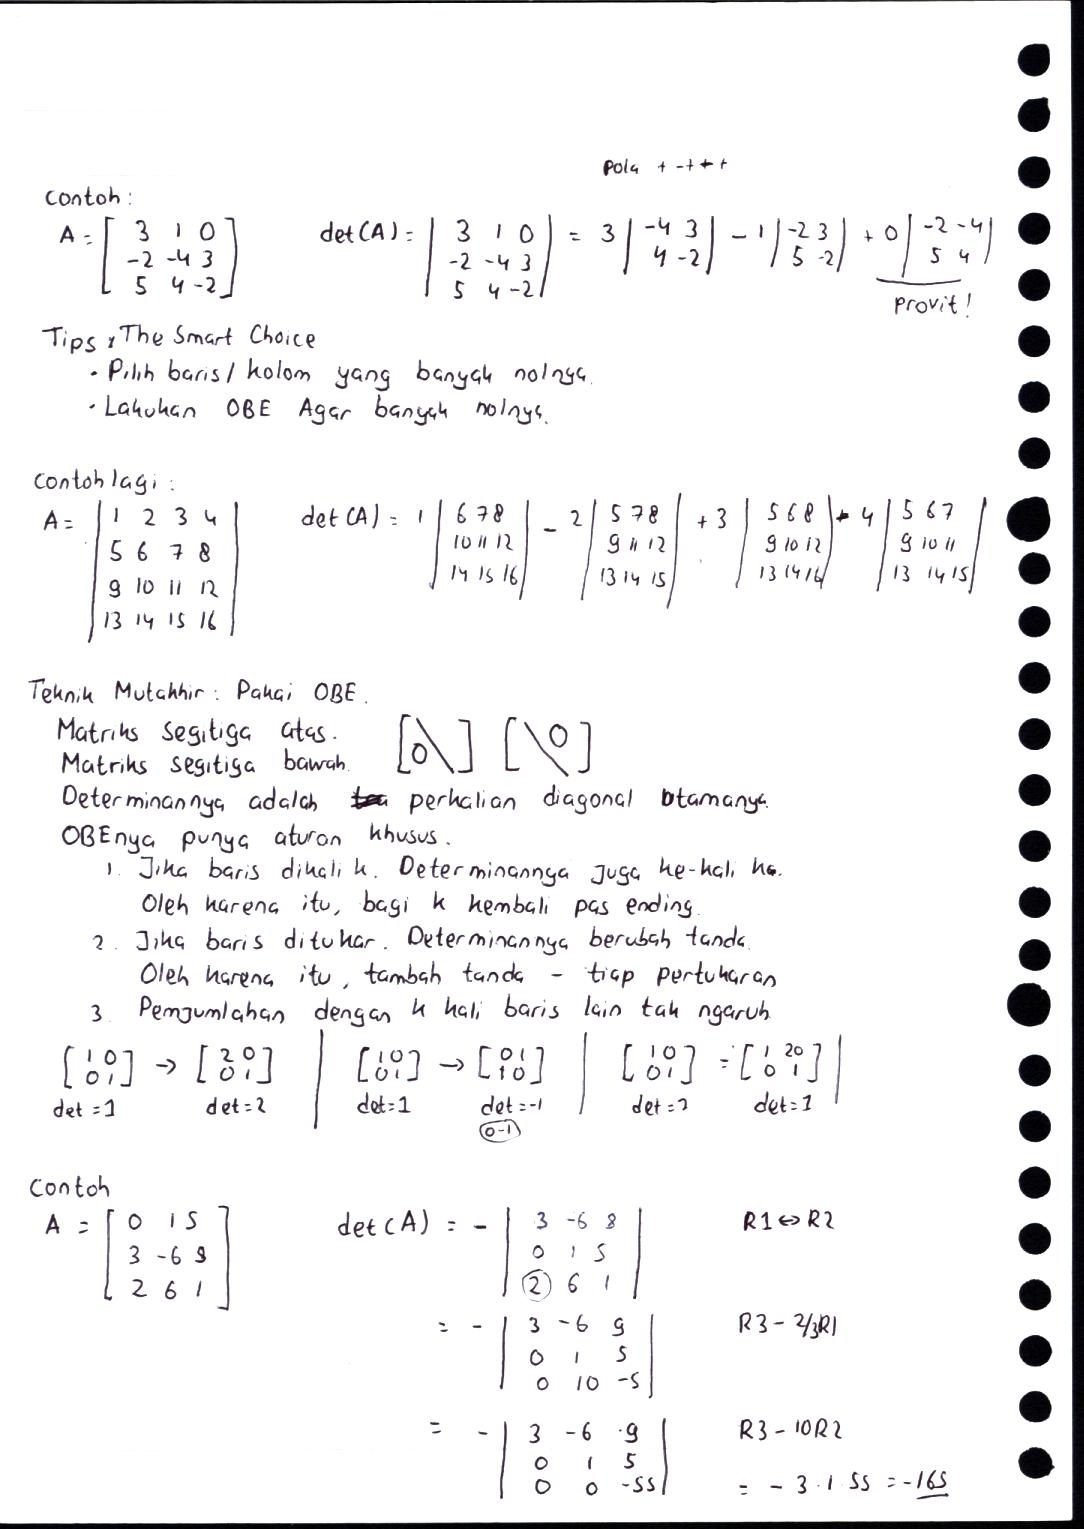 Pola + - + - +
Contoh :
A = [ 3 1 0 det(A) = | 3 1 0 | = 3 | -4 3 | - 1 | -2 3 | + 0 | -2 -4 |
-2 -4 3 -2 -4 3 4 -2 5 -2 5 4
5 4 -2 ] 5 4 -2 Provit!
Tips, The Smart Choice
• Pilih baris / kolom yang banyak nolnya.
• Lakukan OBE Agar banyak nolnya.
Contoh lagi :
A = | 1 2 3 4 | det(A) = 1 | 6 7 8 | - 2 | 5 7 8 | + 3 | 5 6 8 | - 4 | 5 6 7 |
5 6 7 8 10 11 12 9 11 12 9 10 12 9 10 11
9 10 11 12 14 15 16 13 14 15 13 14 16 13 14 15
13 14 15 16
Teknik Mutakhir : Pakai OBE.
Matriks segitiga atas. [0\ ] [ \0]
Matriks segitiga bawah.
Determinannya adalah perkalian diagonal utamanya.
OBEnya punya aturan khusus.
1. Jika baris dikali k. Determinannya juga ke-kali ka.
Oleh karena itu, bagi k kembali pas ending.
2. Jika baris ditukar. Determinannya berubah tanda.
Oleh karena itu, tambah tanda - tiap pertukaran
3. Pemjumlahan dengan k kali baris lain tak ngaruh
[ 1 0 ] → [ 2 0 ] | [ 1 0 ] → [ 0 1 ] | [ 1 0 ] = [ 1 20 ] |
0 1 0 1 0 1 1 0 0 1 0 1
det = 1 det = 2 det = 1 det = -1 det = 1 det = 1
0-1
Contoh
A = [ 0 1 5 ] det(A) = - | 3 -6 9 | R1 ↔ R2
3 -6 9 0 1 5
2 6 1 2 6 1
= - | 3 -6 9 | R3 - 2/3R1
0 1 5
0 10 -5
= - | 3 -6 9 | R3 - 10R2
0 1 5
0 0 -55 = - 3 · 1 · 55 = -165